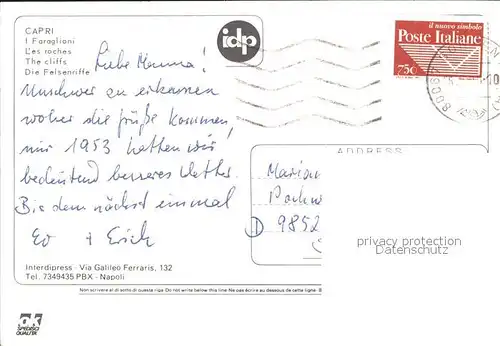 CAPRI
I Faraglioni
L'es roches
The cliffs
Die Felsenriffe
idp
il nuovo simbolo
Poste Italiane
750
Liebe Mama!
Unschwer zu erkennen
woher die Grüße kommen,
nur 1953 hatten wir
bedeutend besseres Wetter.
Bis dem nächst einmal
Ev + Erich
ADDRESS
Marian
D 9852
privacy protection
Datenschutz
Interdipress - Via Galileo Ferraris, 132
Tel. 7349435 PBX - Napoli
Non scrivere al di sotto di questa riga Do not write below this line Ne pas écrire au dessous de cette ligne
SPEDISCI
QUALITÀ